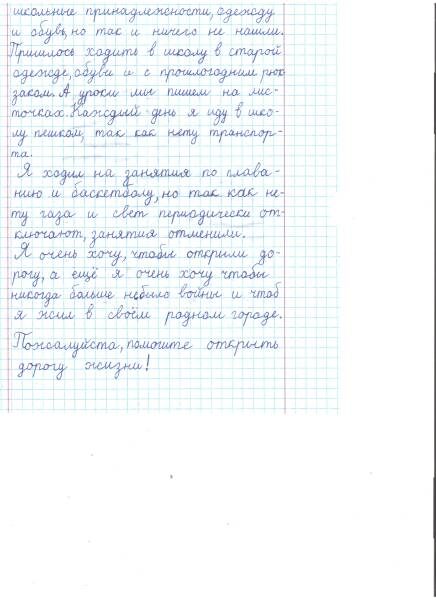 школьные принадлежности, одежду
и обувь, но так и ничего не нашли.
Пришлось ходить в школу в старой
одежде, обуви и с прошлогодним рюк
заком. А уроки мы пишем на лис-
точках. Каждый день я иду в шко-
лу пешком, так как нету транспор-
та.
Я ходил на занятия по плава-
нию и баскетболу, но так как не-
ту газа и свет периодически от-
ключают, занятия отменили.
Я очень хочу, чтобы открыли до-
рогу, а ещё я очень хочу чтобы
никогда больше небыло войны и чтоб
я жил в своём родном городе.
Пожалуйста, помогите открыть
дорогу жизни!